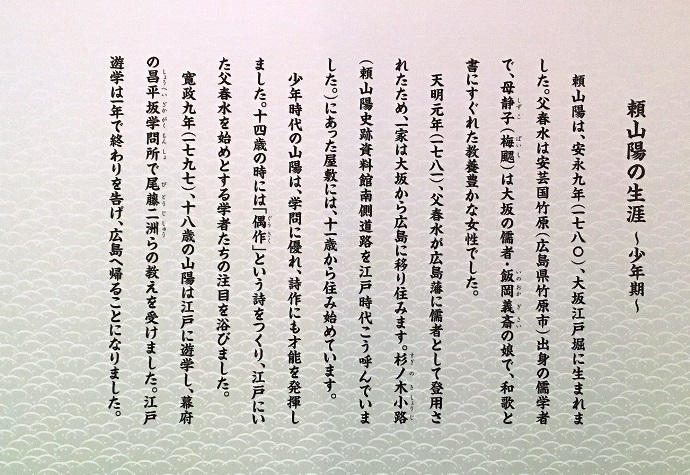 頼山陽の生涯 ～少年期～
頼山陽は、安永九年(一七八〇)、大坂江戸堀に生まれま
した。父春水は安芸国竹原(広島県竹原市)出身の儒学者
で、母静子(梅颸)は大坂の儒者・飯岡義斎の娘で、和歌と
書にすぐれた教養豊かな女性でした。
天明元年(一七八一)、父春水が広島藩に儒者として登用さ
れたため、一家は大坂から広島に移り住みます。杉ノ木小路
(頼山陽史跡資料館南側道路を江戸時代こう呼んでいま
した。)にあった屋敷には、十一歳から住み始めています。
少年時代の山陽は、学問に優れ、詩作にも才能を発揮し
ました。十四歳の時には「偶作」という詩をつくり、江戸にい
た父春水を始めとする学者たちの注目を浴びました。
寛政九年(一七九七)、十八歳の山陽は江戸に遊学し、幕府
の昌平坂学問所で尾藤二洲らの教えを受けました。江戸
遊学は一年で終わりを告げ、広島へ帰ることになりました。